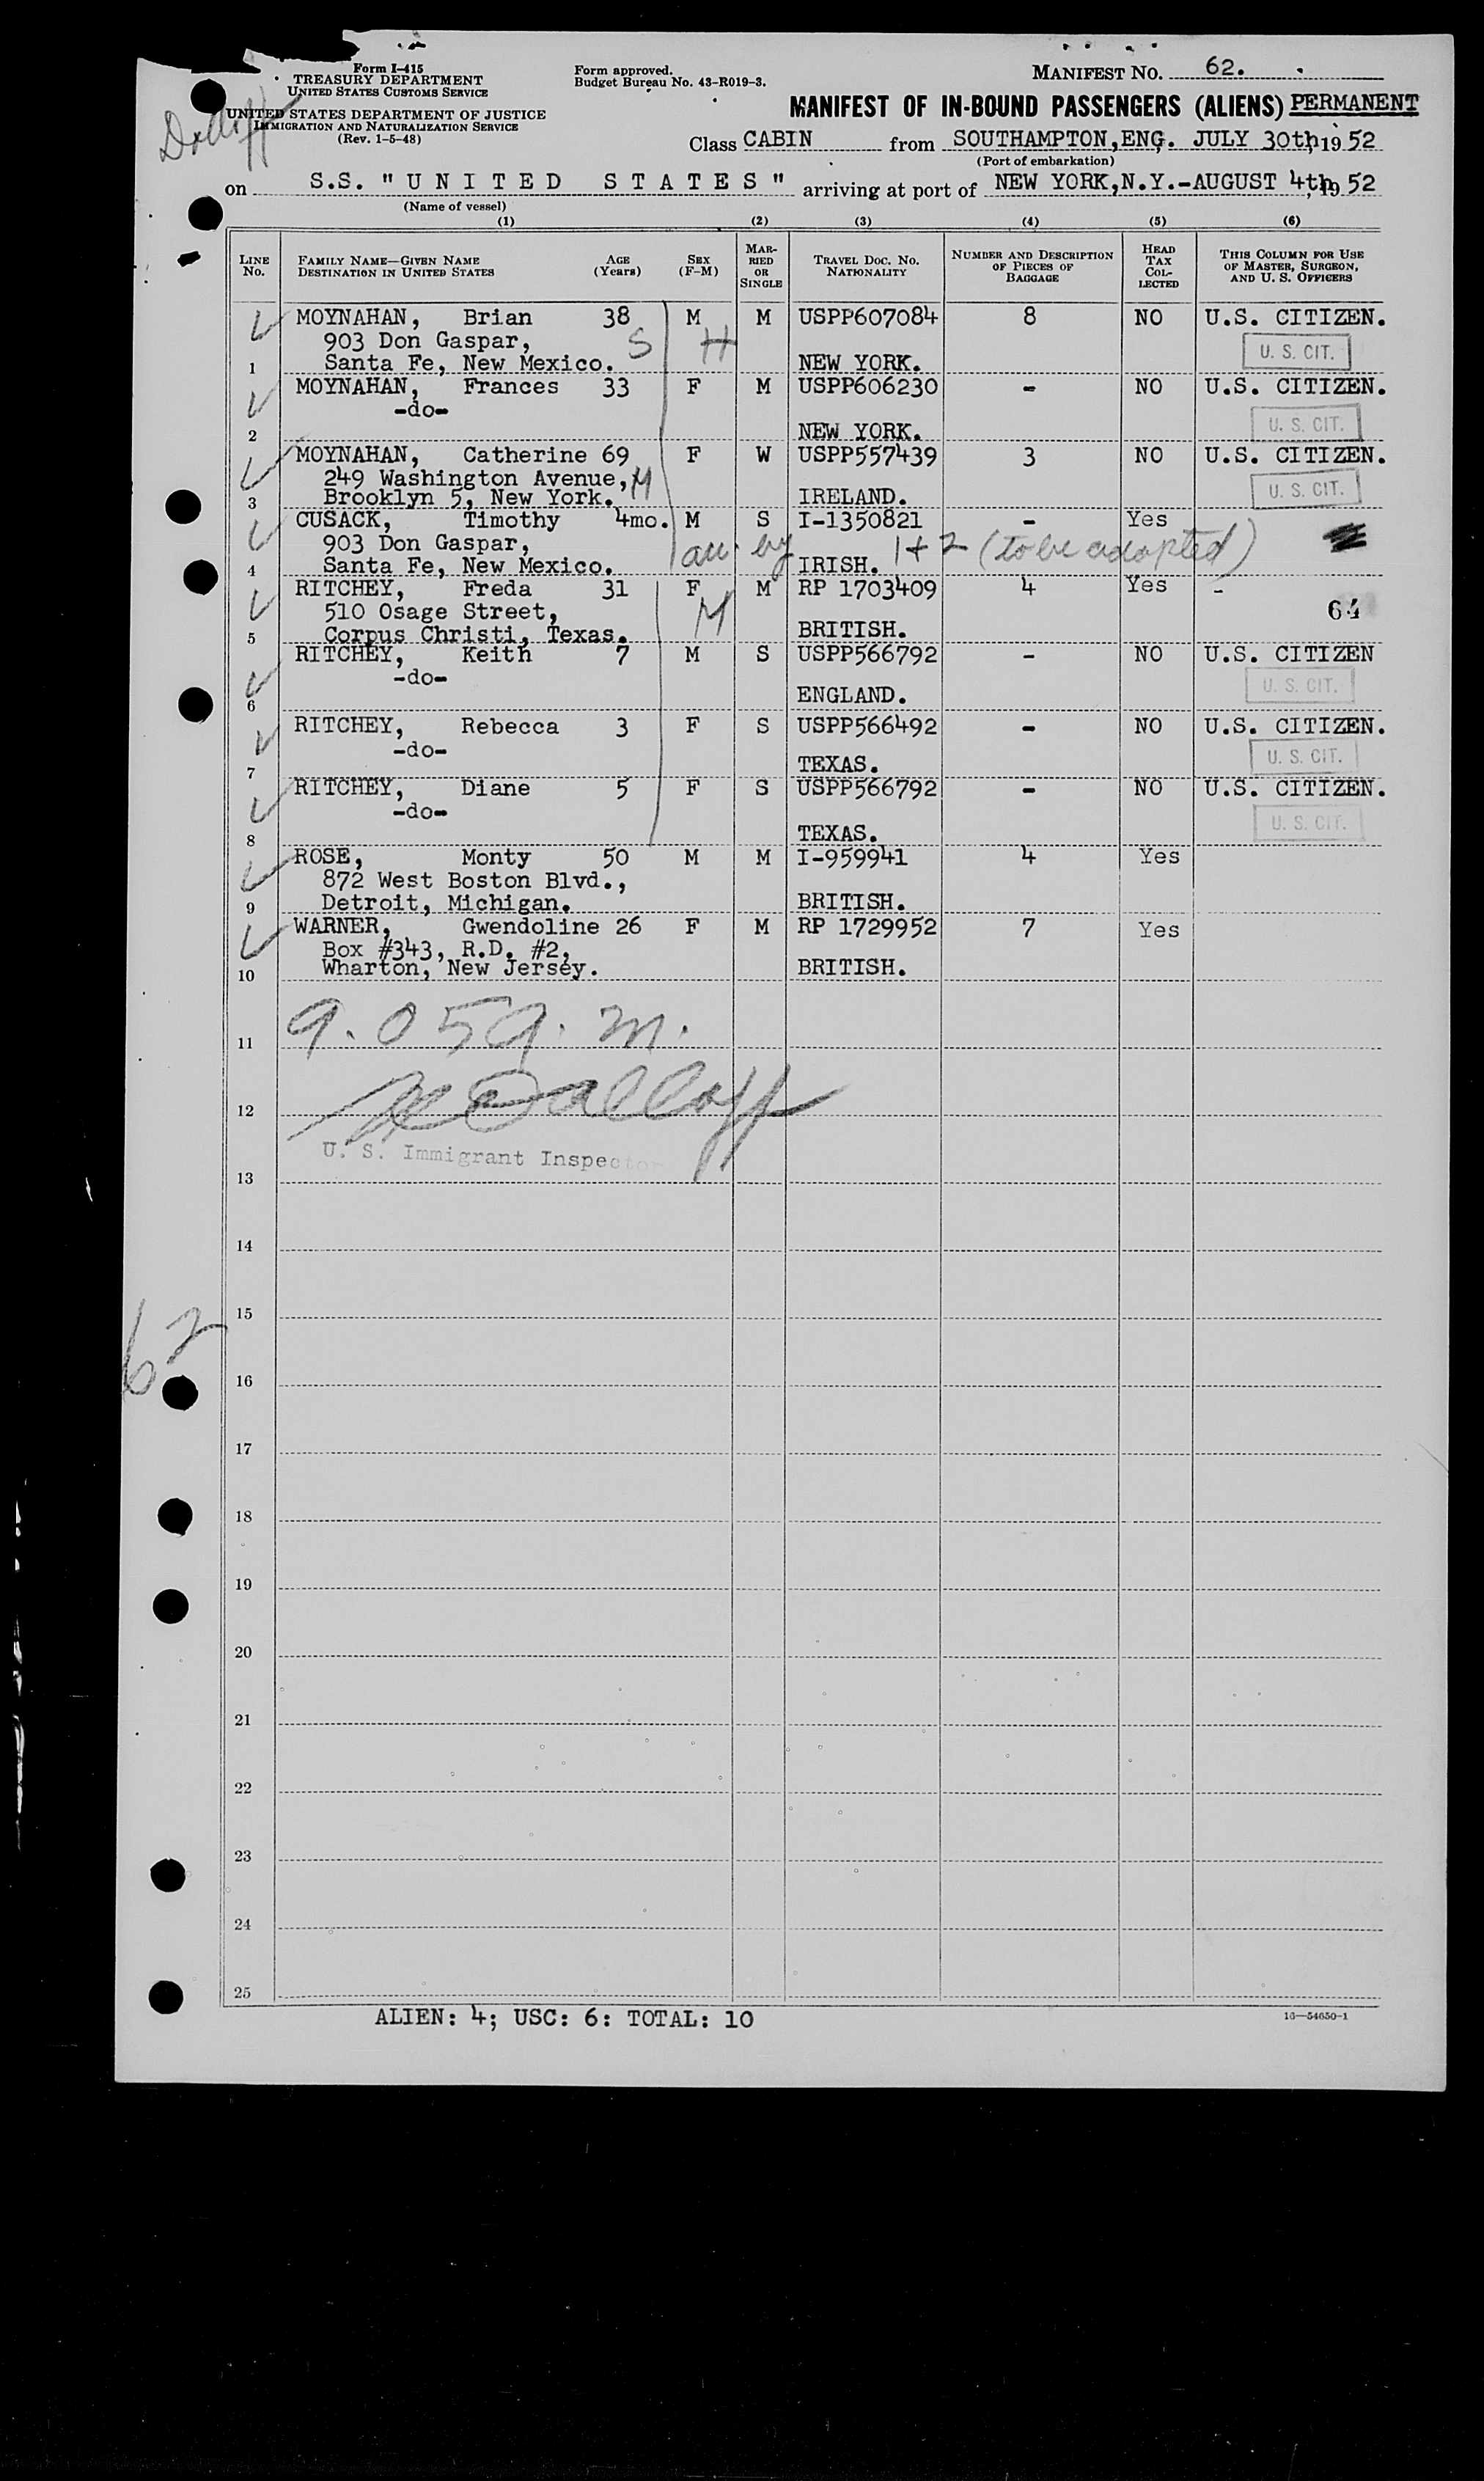 Form I-415
TREASURY DEPARTMENT
UNITED STATES CUSTOMS SERVICE
UNITED STATES DEPARTMENT OF JUSTICE
IMMIGRATION AND NATURALIZATION SERVICE
(Rev. 1-5-48)
Form approved.
Budget Bureau No. 43-R019-3.
MANIFEST NO. 62.
MANIFEST OF IN-BOUND PASSENGERS (ALIENS) PERMANENT
Class CABIN from SOUTHAMPTON, ENG. JULY 30th, 19 52
(Port of embarkation)
on S.S. "UNITED STATES" arriving at port of NEW YORK, N.Y.-AUGUST 4th, 19 52
(Name of vessel)
(1) (2) (3) (4) (5) (6)
LINE No. FAMILY NAME—GIVEN NAME DESTINATION IN UNITED STATES AGE (Years) SEX (F-M) MARRIED OR SINGLE TRAVEL DOC. NO. NATIONALITY NUMBER AND DESCRIPTION OF PIECES OF BAGGAGE HEAD TAX COLLECTED THIS COLUMN FOR USE OF MASTER, SURGEON, AND U. S. OFFICERS
MOYNAHAN, Brian 38 M M USPP607084 8 NO U.S. CITIZEN.
903 Don Gaspar, S H U. S. CIT.
1 Santa Fe, New Mexico. NEW YORK.
MOYNAHAN, Frances 33 F M USPP606230 - NO U.S. CITIZEN.
-do- U. S. CIT.
2 NEW YORK.
MOYNAHAN, Catherine 69 F W USPP557439 3 NO U.S. CITIZEN.
249 Washington Avenue, M U. S. CIT.
3 Brooklyn 5, New York. IRELAND.
CUSACK, Timothy 4mo. M S I-1350821 - Yes
903 Don Gaspar, acc. by 1 + 2 (to be adopted)
4 Santa Fe, New Mexico. IRISH.
RITCHEY, Freda 31 F M RP 1703409 4 Yes -
510 Osage Street, M 64
5 Corpus Christi, Texas. BRITISH.
RITCHEY, Keith 7 M S USPP566792 - NO U.S. CITIZEN
-do- U. S. CIT.
6 ENGLAND.
RITCHEY, Rebecca 3 F S USPP566492 - NO U.S. CITIZEN.
-do- U. S. CIT.
7 TEXAS.
RITCHEY, Diane 5 F S USPP566792 - NO U.S. CITIZEN.
-do- U. S. CIT.
8 TEXAS.
ROSE, Monty 50 M M I-959941 4 Yes
872 West Boston Blvd.,
9 Detroit, Michigan. BRITISH.
WARNER, Gwendoline 26 F M RP 1729952 7 Yes
Box #343, R.D. #2,
10 Wharton, New Jersey. BRITISH.
9.05 a.m.
11
12
U. S. Immigrant Inspector
13
14
15
62
16
17
18
19
20
21
22
23
24
25
ALIEN: 4; USC: 6: TOTAL: 10
16—54650-1